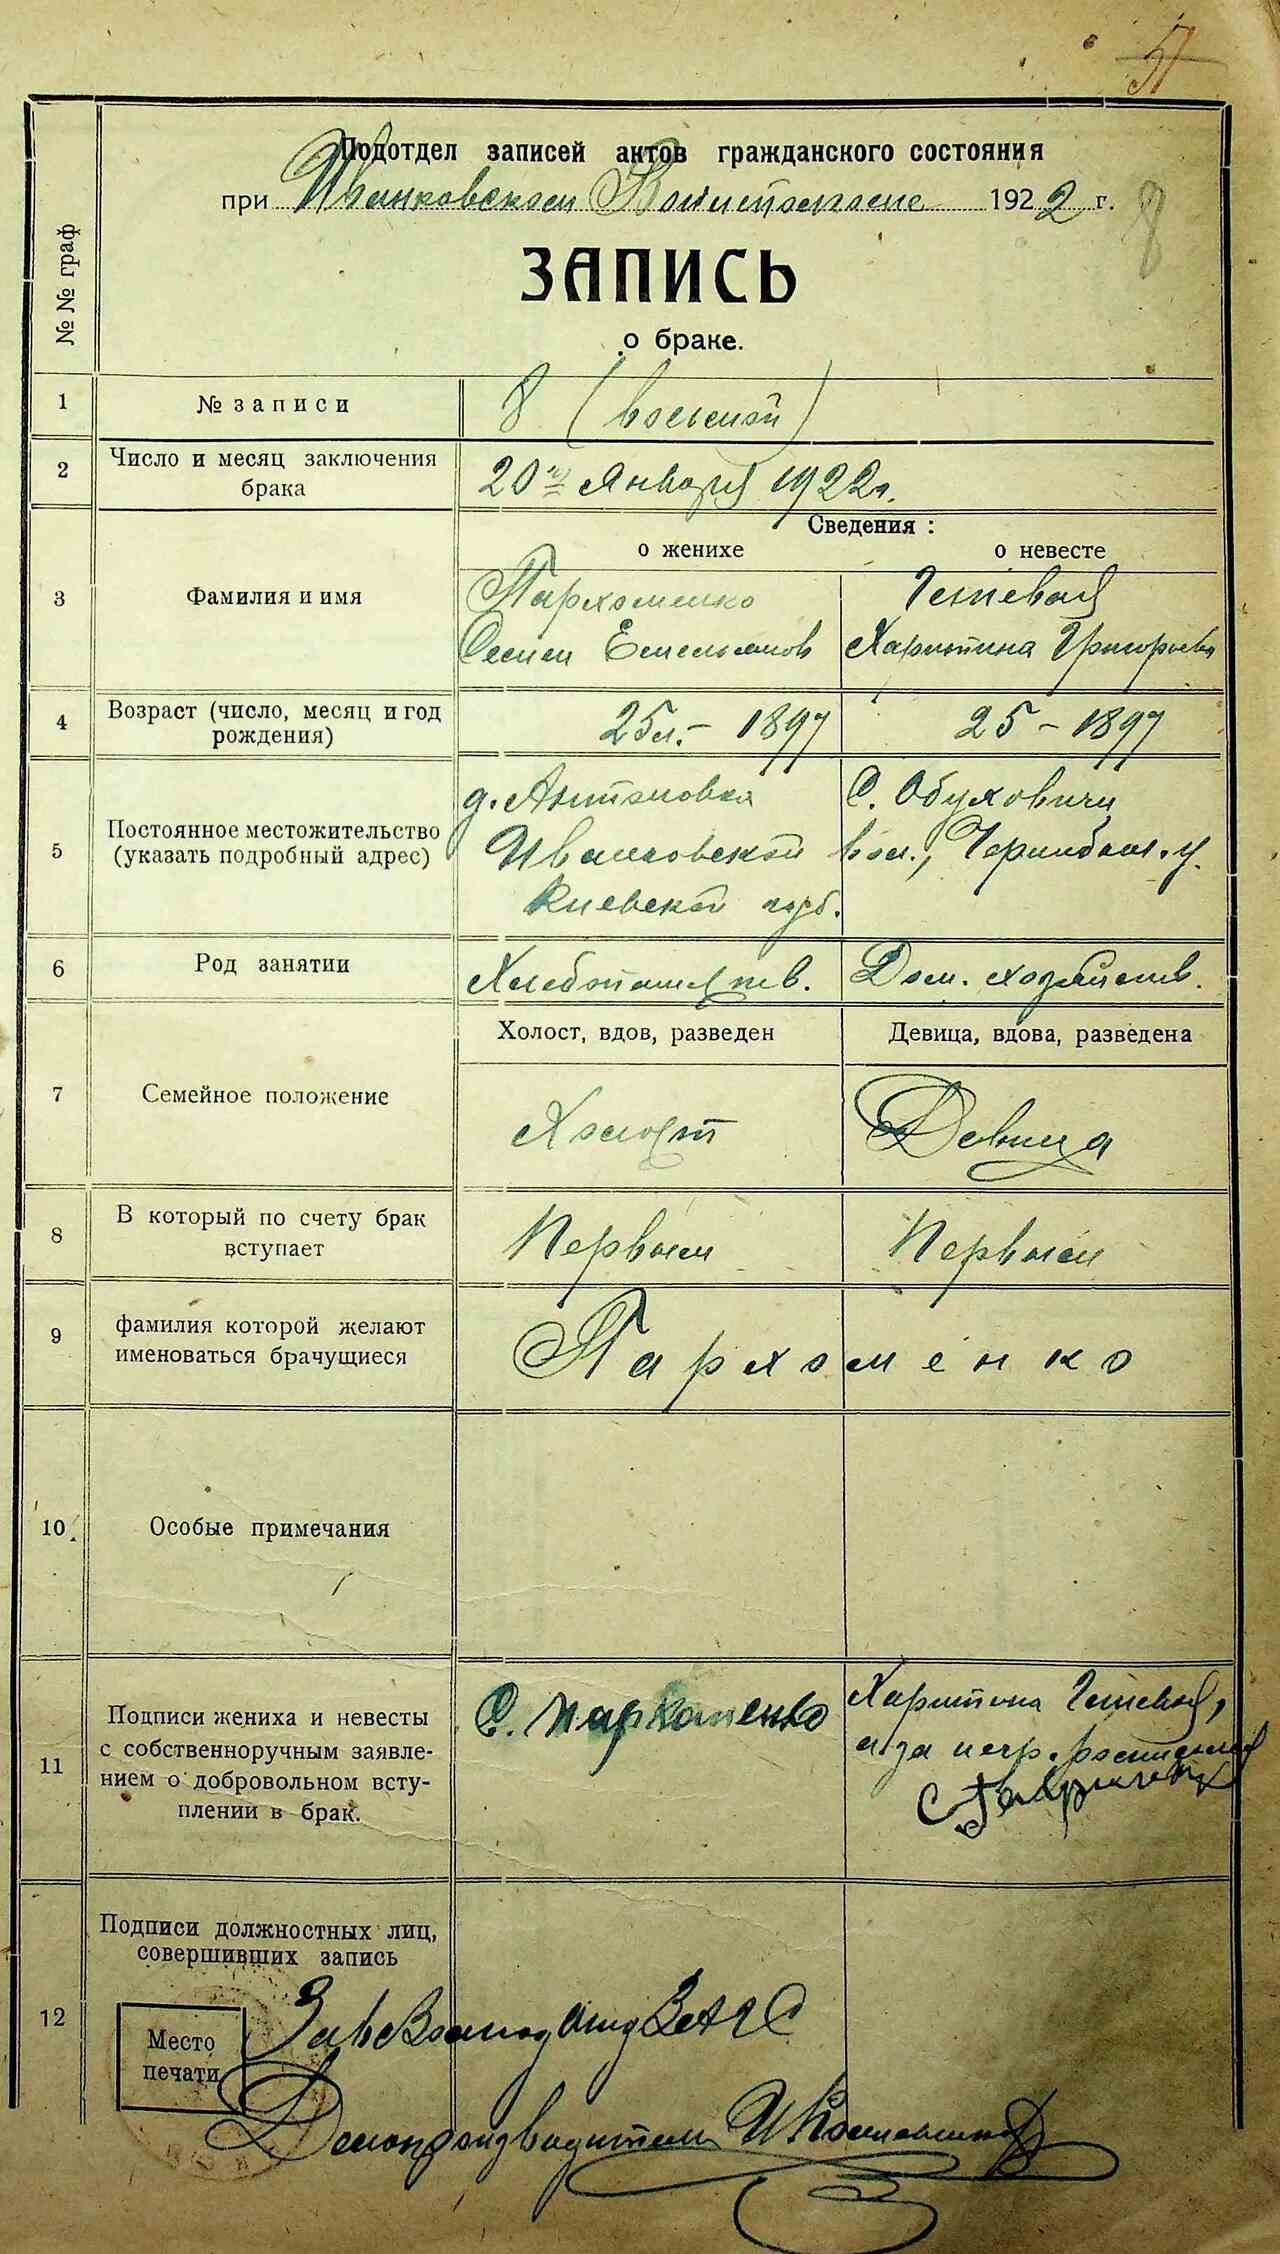 51
Подотдел записей актов гражданского состояния
при Иванковском 1922 г.
8
№№ граф
ЗАПИСЬ
о браке.
1 № записи 8 (восьмой)
2 Число и месяц заключения брака 20го Января 1922г.
Сведения :
о женихе о невесте
3 Фамилия и имя
Пархоменко
Семен Емельянов Харитина Григорьевн
4 Возраст (число, месяц и год рождения) 25л. - 1897 25 - 1897
5 Постоянное местожительство (указать подробный адрес)
д. Антоновка С. Обуховичи
Иванковской вол., Чернобыл. у.
Киевской губ.
6 Род занятии Хлебопашеств. Дом. хозяйств.
Холост, вдов, разведен Девица, вдова, разведена
7 Семейное положение Холост Девица
8 В который по счету брак вступает Первым Первым
9 фамилия которой желают именоваться брачущиеся Пархоменко
10 Особые примечания
11 Подписи жениха и невесты
с собственноручным заявле-
нием о добровольном всту-
плении в брак.
С. Пархоменко
Харитина
а за негр.
12 Подписи должностных лиц,
совершивших запись
Место
печати
ЗАГС
Делопроизводитель